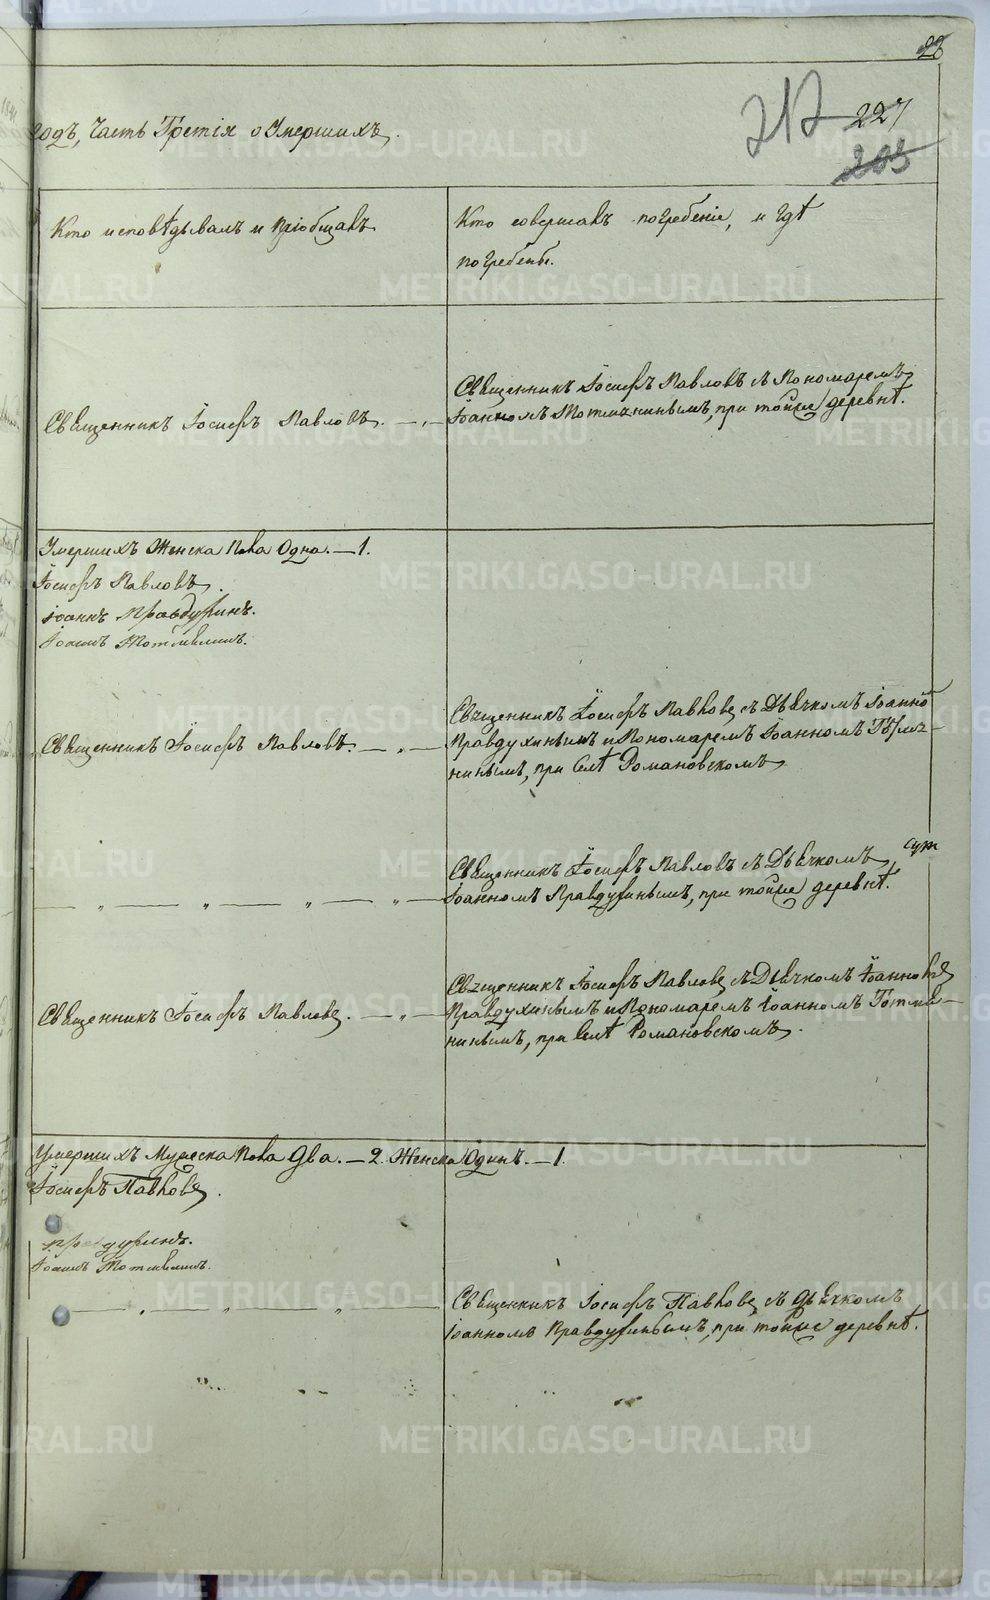 28
годъ, Часть Третія о Умершихъ.
212
227
203
Кто исповѣдывалъ и пріобщалъ
Кто совершалъ погребеніе, и гдѣ
погребены.
Священникъ Іосифъ Павловъ.
Священникъ Іосифъ Павловъ съ Пономаремъ
Іоанномъ Тотмининымъ, при тойже деревнѣ.
Умершихъ Женска пола Одна. — 1.
Іосифъ Павловъ.
Іоаннъ Правдухинъ.
Іоаннъ
Священникъ Іосифъ Павловъ.
Священникъ Іосифъ Павловъ съ Дьячкомъ Іоанно
Правдухинымъ и Пономаремъ Іоанномъ Тотми-
нинымъ, при Селѣ Романовскомъ
Священникъ Іосифъ Павловъ съ Дьячкомъ
Іоанномъ Правдухинымъ, при тойже деревнѣ.
Священникъ Іосифъ Павловъ.
Священникъ Іосифъ Павловъ съ Дьячкомъ Іоанномъ
Правдухинымъ и Пономаремъ Іоанномъ Тотми-
нинымъ, при Селѣ Романовскомъ.
Умершихъ Мужеска пола Два. — 2. Женска Одинъ. — 1.
Іосифъ Павловъ.
Правдухинъ.
Іоаннъ
Священникъ Іосифъ Павловъ съ Дьячкомъ
Іоанномъ Правдухинымъ, при тойже деревнѣ.
METRIKI.GASO-URAL.RU